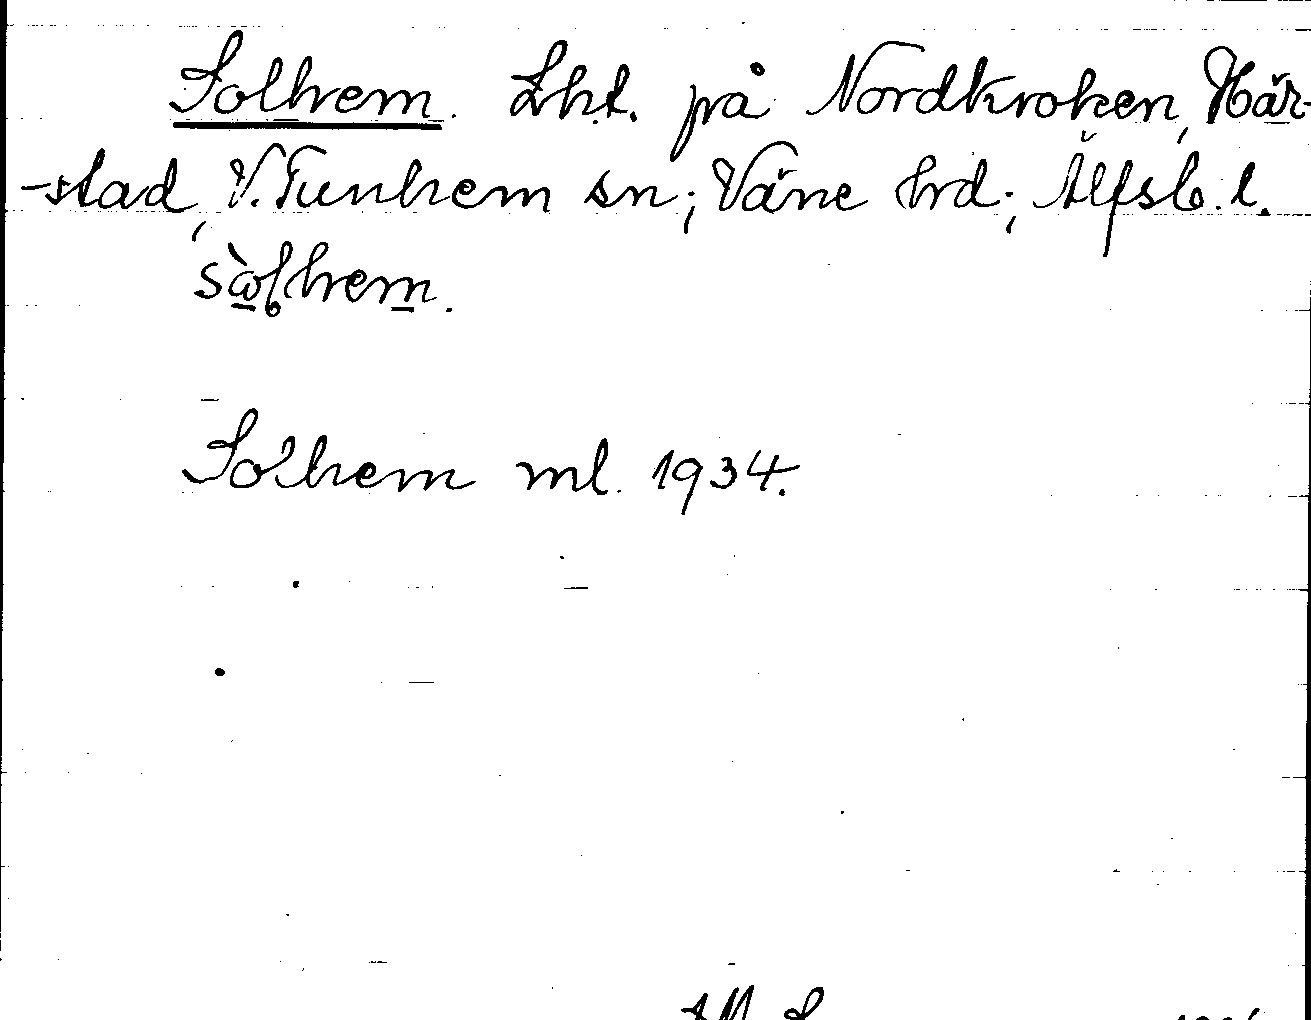 Solhem. Lht. på Nordkroken, Hår-
-stad, V. Tunhem sn; Väne hrd; Älfsb. l.
sòlhem.
Solhem ml. 1934.